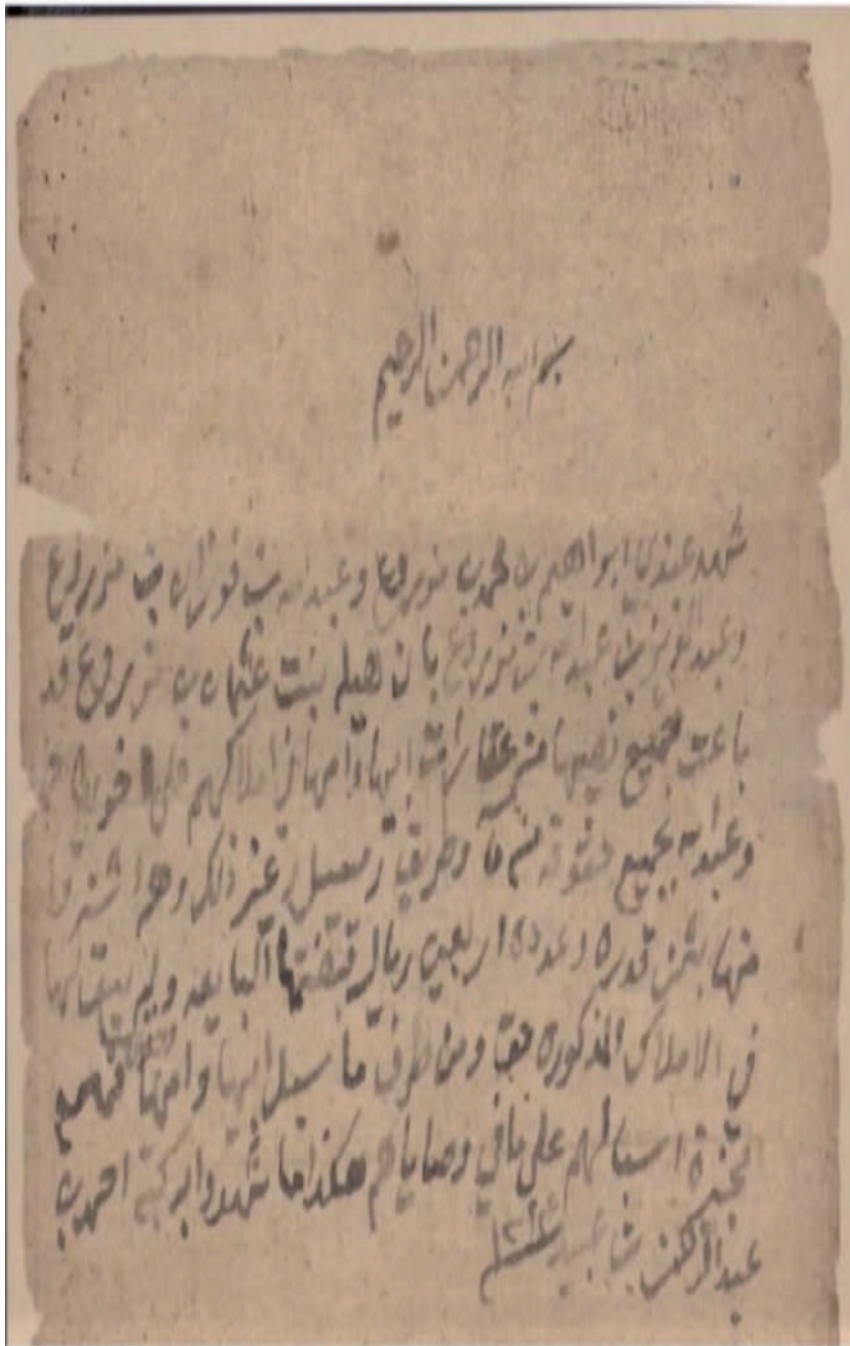 بسم الله الرحمن الرحيم
شهد عندي ابراهيم بن محمد بن مزروع وعبدالله بن فوزان بن مزروع
وعبدالعزيز بن عبدالله بن مزروع بان هيله بنت عثمان بن مزروع قد
باعت جميع نصيبها من عقارات ابيها وامها من املاكهم على فوزان
وعبدالله بجميع حقوقه من ما وطريق ومسيل وغير ذلك وهم اشتروا
منها بثمن قدره وعدده اربعين ريال قبضتها البايعه ولم يبق لها
في الاملاك المذكوره حق ومن طرف ما سبل ابيها وامها فهم
اسبالهم على ما في وصاياهم هكذا ما شهدوا به كتبه احمد بن
عبدالرحمن بن عبيد